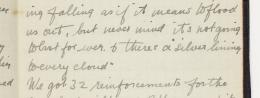 ing falling as if it means to flood
us out, but never mind it's not going
to last for ever & there's a "silver lining
to every cloud"
We got 32 reinforcements for the